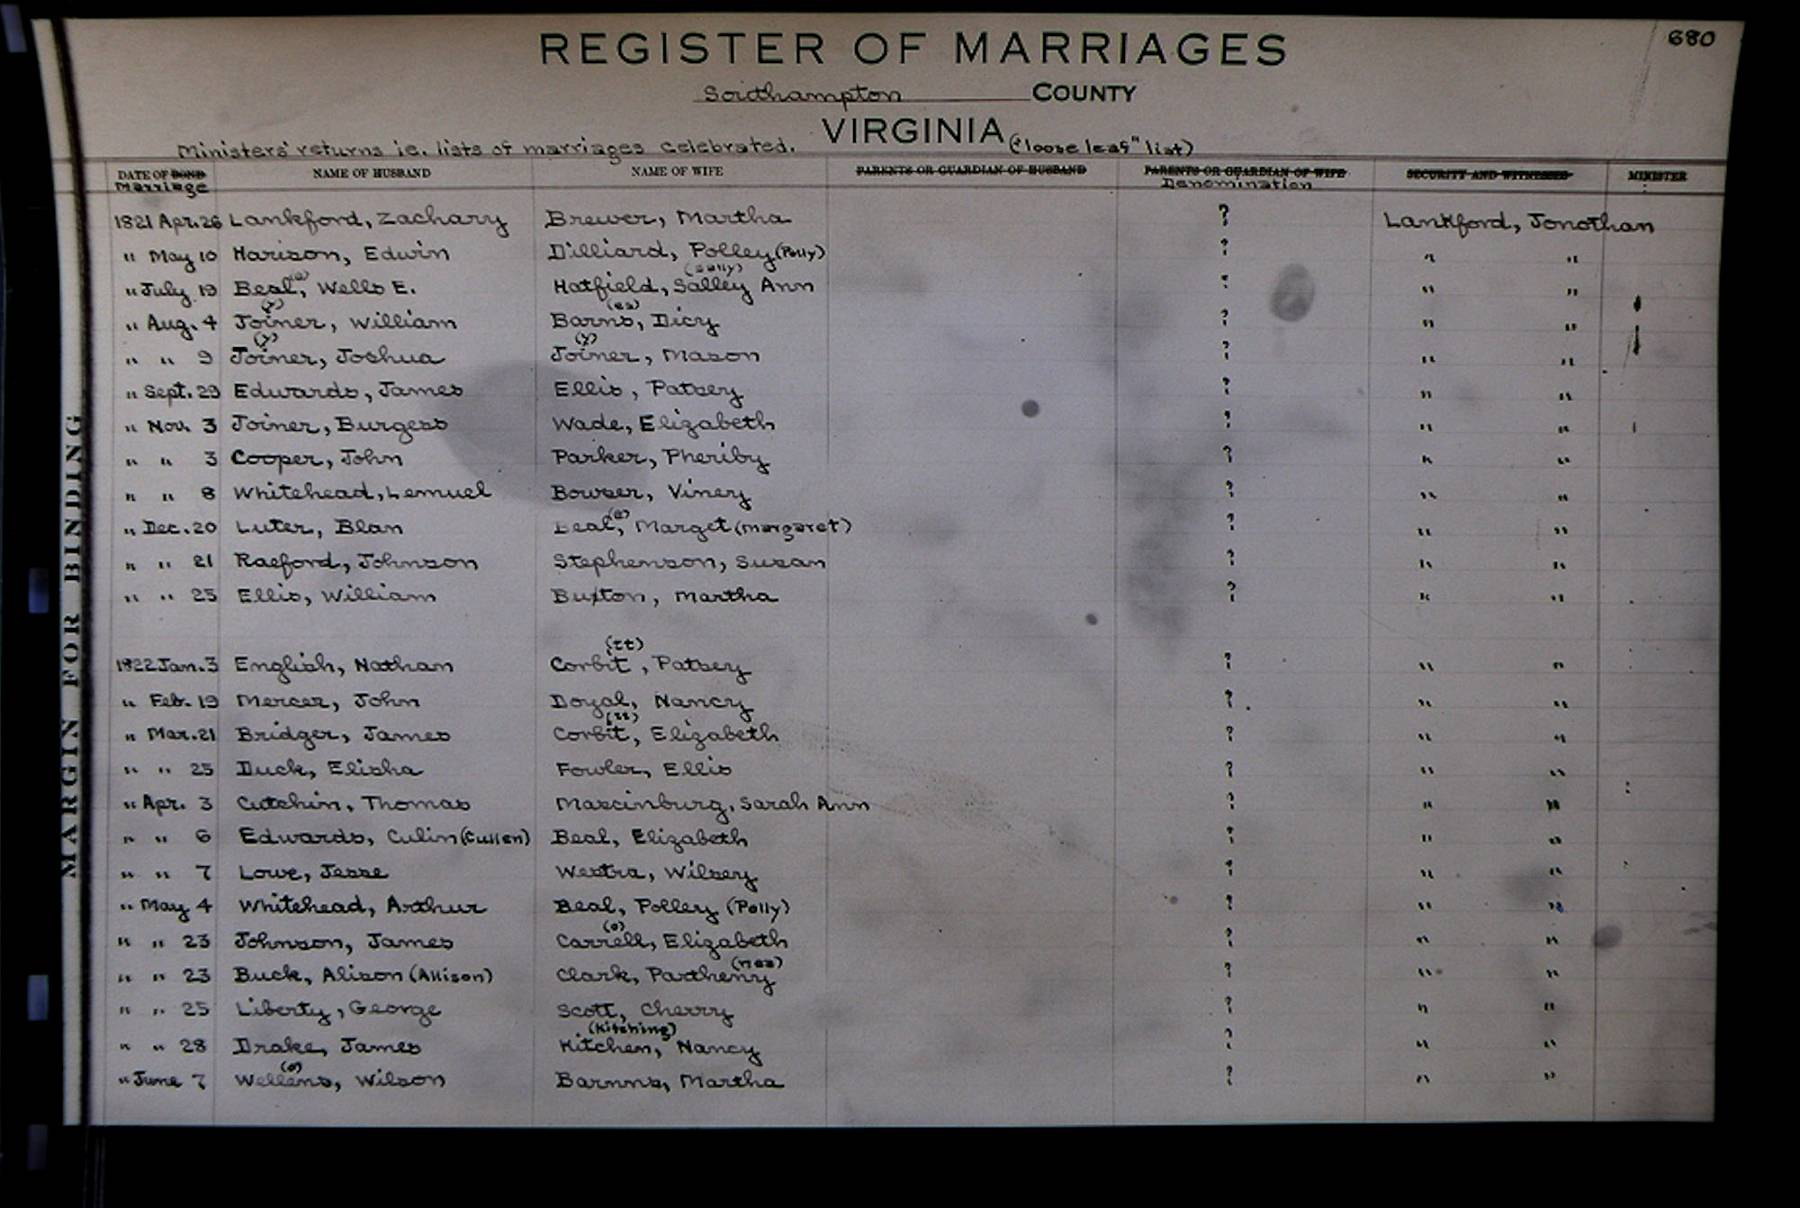 680
REGISTER OF MARRIAGES
Southampton COUNTY
VIRGINIA
Ministers' returns ie. lists of marriages celebrated. ("loose leaf" list)
DATE OF BOND NAME OF HUSBAND NAME OF WIFE PARENTS OR GUARDIAN OF HUSBAND PARENTS OR GUARDIAN OF WIFE SECURITY AND WITNESSES MINISTER
Marriage Denomination
1821 Apr. 26 Lankford, Zachary Brewer, Martha ? Lankford, Jonothan
" May 10 Harison, Edwin Dilliard, Polley (Polly) ? " "
(e) (Sally)
" July 19 Beal, Wells E. Hatfield, Salley Ann ? " "
(y) (es)
" Aug. 4 Joiner, William Barns, Dicy ? " "
(y) (y)
" " 9 Joiner, Joshua Joiner, Mason ? " "
" Sept. 29 Edwards, James Ellis, Patsey ? " "
" Nov. 3 Joiner, Burgess Wade, Elizabeth ? " "
" " 3 Cooper, John Parker, Pheriby ? " "
" " 8 Whitehead, Lemuel Bowser, Viney ? " "
(e)
" Dec. 20 Luter, Blan Beal, Marget (Margaret) ? " "
" " 21 Raeford, Johnson Stephenson, Susan ? " "
" " 25 Ellis, William Buxton, Martha ? " "
(tt)
1822 Jan. 3 English, Nathan Corbit, Patsey ? " "
" Feb. 19 Mercer, John Doyal, Nancy ? " "
(tt)
" Mar. 21 Bridger, James Corbit, Elizabeth ? " "
" " 25 Duck, Elisha Fowler, Ellis ? " "
" Apr. 3 Cutchin, Thomas Mascinburg, Sarah Ann ? " "
" " 6 Edwards, Culin (Cullen) Beal, Elizabeth ? " "
" " 7 Lowe, Jesse Westra, Wilsey ? " "
" May 4 Whitehead, Arthur Beal, Polley (Polly) ? " "
(o)
" " 23 Johnson, James Carrell, Elizabeth ? " "
(nea)
" " 23 Buck, Alison (Allison) Clark, Partheny ? " "
" " 25 Liberty, George Scott, Cherry ? " "
(Kitching)
" " 28 Drake, James Kitchen, Nancy ? " "
(o)
" June 7 Wellens, Wilson Barnns, Martha ? " "
MARGIN FOR BINDING